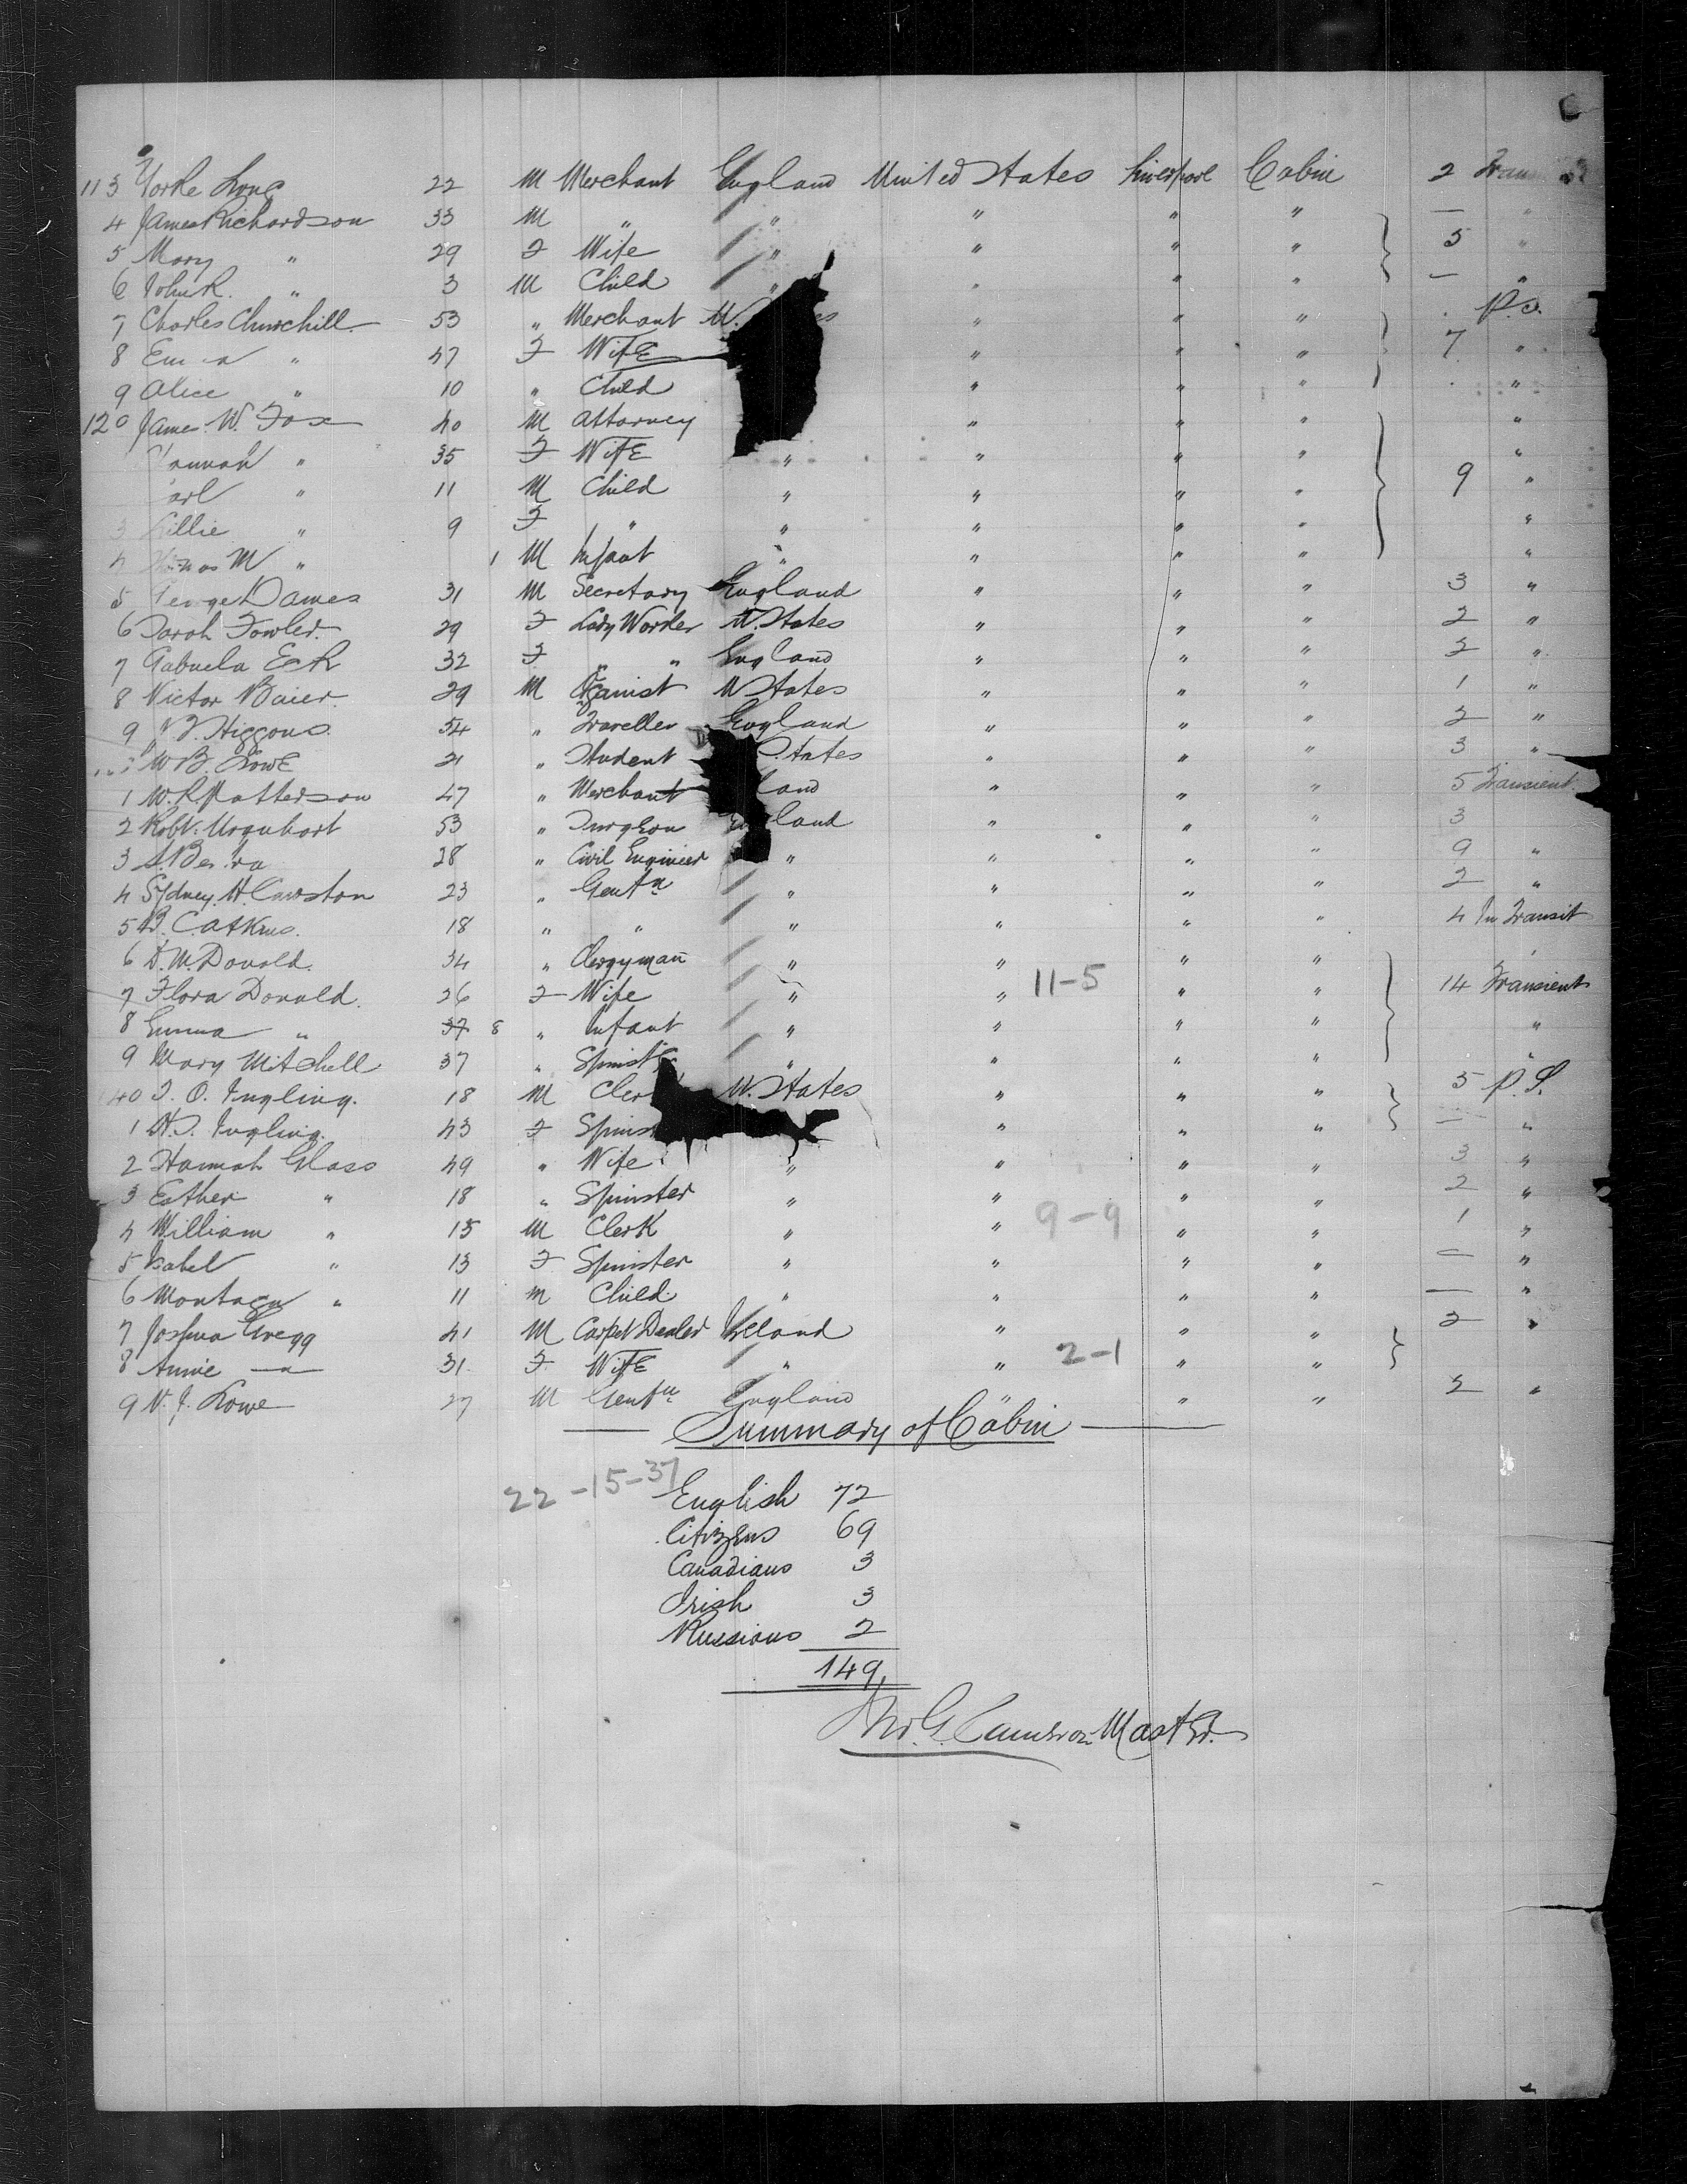 113 Yorke Long 22 M Merchant England United States Liverpool Cabin 2
4 James Richardson 33 M " " " " " — "
5 Mary " 29 F Wife " " " " 5 "
6 John R. " 3 M Child " " " " — "
7 Charles Churchill 53 " Merchant U. " " " P.S.
8 " 47 F Wife " " " 7 "
9 Alice " 10 " Child " " " "
120 James. W. Fox 40 M Attorney " " " "
" 35 F Wife " " " " "
" 11 M Child " " " " 9 "
3 Lillie " 9 F " " " " " "
4 M " 1 M Infant " " " " "
5 George Dawes 31 M Secretary England " " " 3 "
6 Sarah Fowler. 29 F Lady Worker U. States " " " 2 "
7 32 F " " England " " " 2 "
8 Victor Baier. 29 M Organist U States " " " 1 "
9 Higgons. 54 " Traveller England " " " 2 "
W B. Lowe 21 " Student States " " " 3 "
1 W. R Patterson 47 " Merchant land " " " 5 Transient.
2 Robt. Urquhart 53 " Surgeon England " " " 3
3 28 " Civil Engineer " " " " 9 "
4 Sydney. H. Cawston 23 " Gentn " " " " 2 "
5 C Atkins. 18 " " " " " " 4 In Transit
6 D. M. Donald. 34 " Clergyman " " " " "
7 Flora Donald. 26 F Wife " " 11-5 " " 14 Transient
8 Emma " 37 8 " Infant " " " " "
9 Mary Mitchell 37 " Spinst " " " " "
140 O. Ingling. 18 M Cler U. States " " " 5 P.S.
1 Ingling. 43 F Spinst " " " — "
2 Hannah Glass 49 " Wife " " " " 3 "
3 Esther " 18 " Spinster " " " " 2 "
4 William " 15 M Clerk " " 9-9 " " 1 "
5 Isabel " 13 F Spinster " " " " — "
6 Montagu " 11 M Child. " " " " — "
7 Joshua Gregg 41 M Carpet Dealer Ireland " " " 2 "
8 Annie — " — 31. F Wife " " 2-1 " "
9 Lowe 27 M Gentn England " " " 2 "
Summary of Cabin
22-15-37
English 72
Citizens 69
Canadians 3
Irish 3
Russians 2
149
Jno. G. Cameron Master.